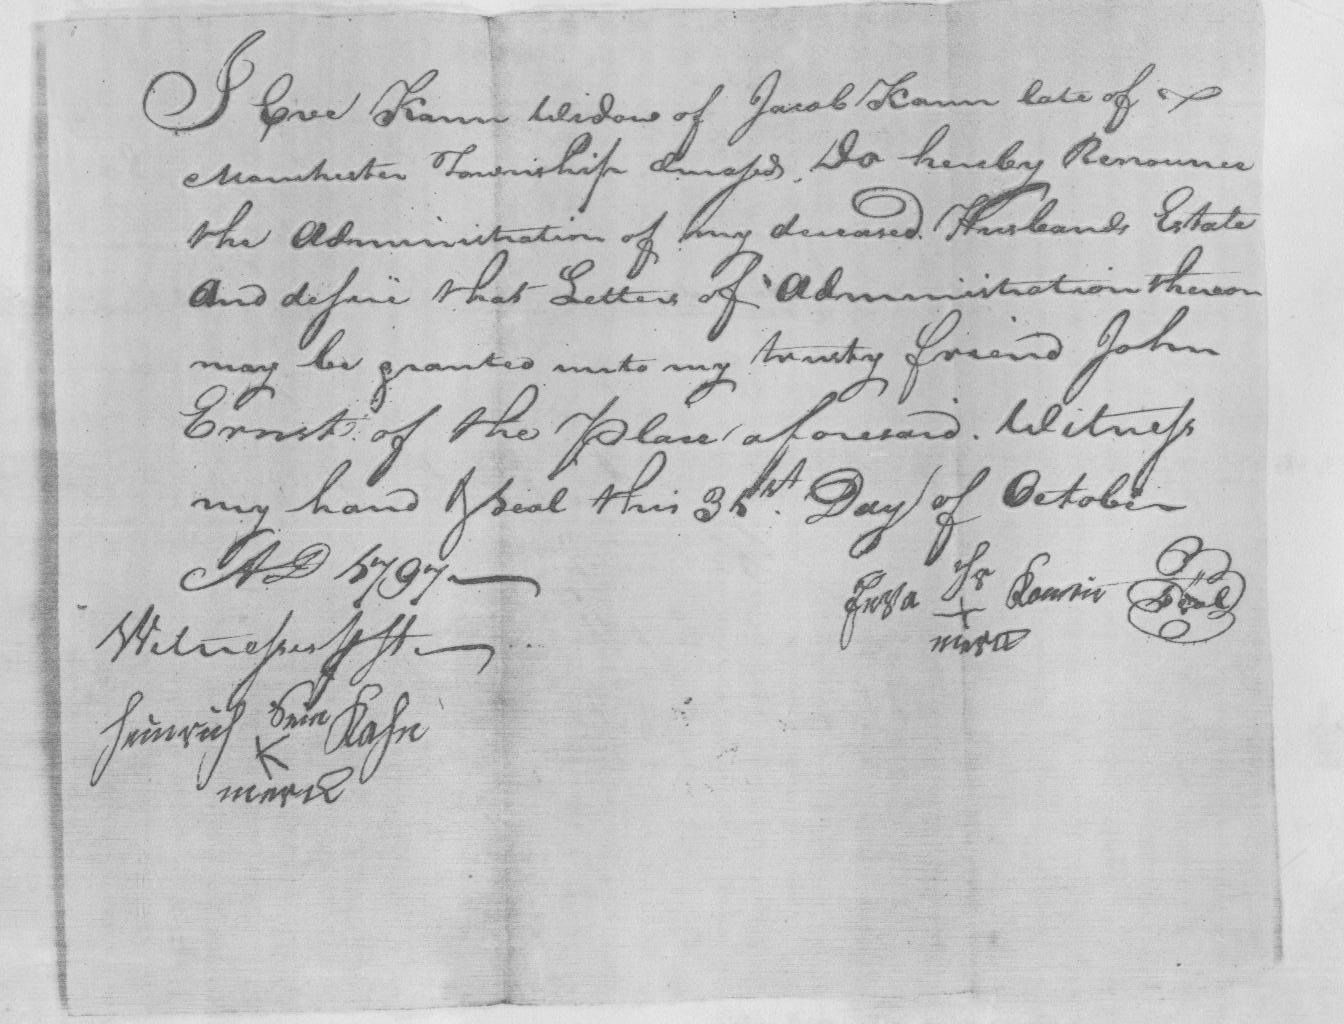 I Eve Kann Widow of Jacob Kann late of
Manchester Township deceased, Do hereby Renounce
the Administration of my deceased Husbands Estate
And desire that Letters of Administration thereon
may be granted unto my trusty friend John
Ernst of the Place aforesaid. Witness
my hand & Seal this 31st. Day of October
AD 1797
Witnesses Att
Efva Ihr Kannin Seal
+
merck
Heinrich Sein Kahn
X
merck